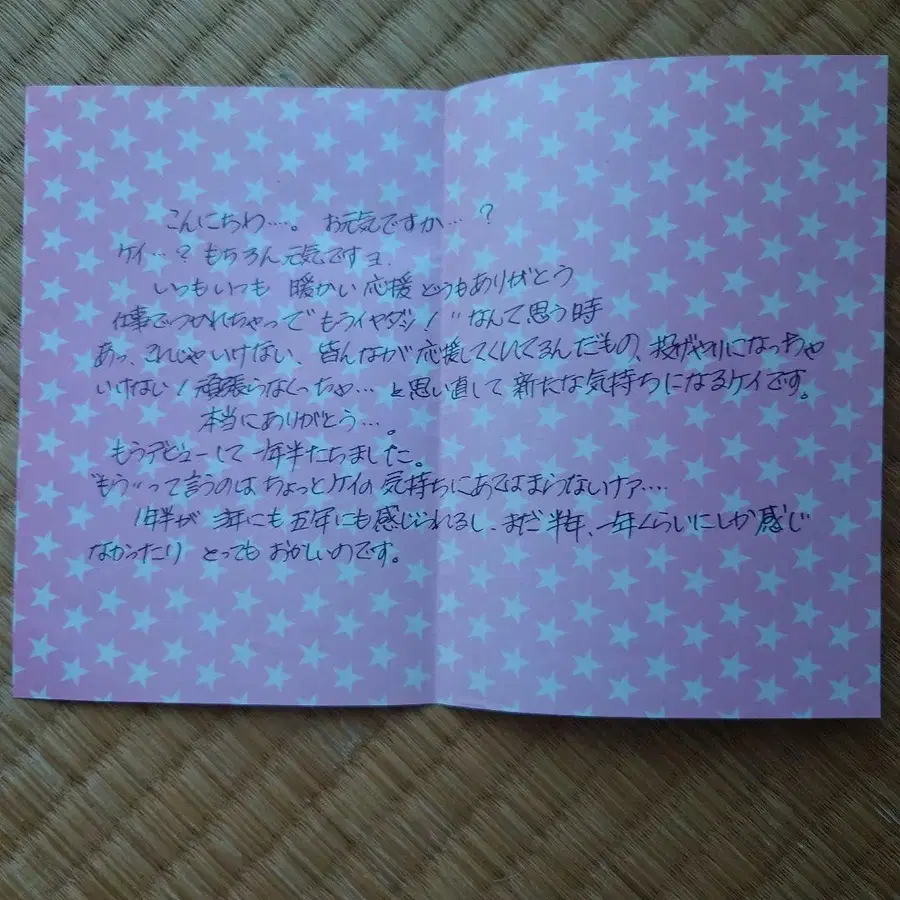 こんにちわ‥‥。 お元気ですか‥‥?
ケイ‥‥? もちろん元気ですョ.
いつもいつも 暖かい応援 どうもありがとう
仕事でつかれちゃって"もうイヤダシ!"なんて思う時
あっ、これじゃいけない、皆んなが応援してくれてるんだもの、投げやりになっちゃ
いけない!頑張らなくっちゃ‥‥と思い直して新たな気持ちになるケイです。
本当にありがとう‥‥。
もうデビューして一年半たちました。
"もう"って言うのは ちょっとケイの気持ちにあてはまらないナァ‥‥
1年半が 3年にも五年にも感じられるし、まだ半年、一年くらいにしか感じ
なかったり とっても おかしいのです。